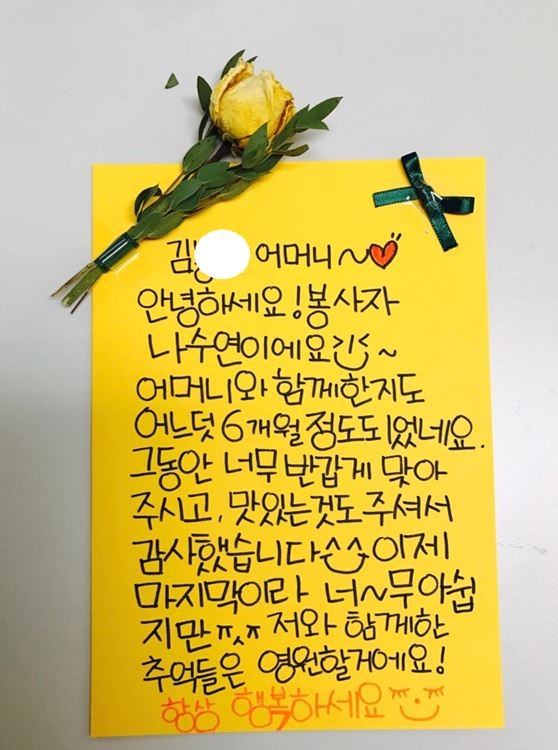 김 어머니~♥
안녕하세요! 봉사자
나수연이에요 :) ~
어머니와 함께한지도
어느덧 6개월 정도 되었네요.
그동안 너무 반갑게 맞아
주시고, 맛있는것도 주셔서
감사했습니다^^ 이제
마지막이라 너~무 아쉽
지만ㅠㅠ 저와 함께한
추억들은 영원할거에요!
항상 행복하세요^^